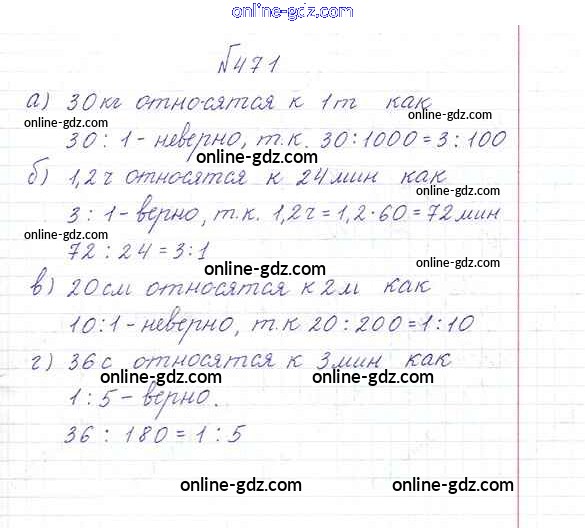 online-gdz.com
№471
а) 30кг относятся к 1т как
online-gdz.com online-gdz.com
30 : 1 - неверно, т.к. 30:1000=3:100
online-gdz.com
б) 1,2ч относятся к 24мин как
online-gdz.com
3 : 1 - верно, т.к. 1,2ч=1,2·60=72мин
online-gdz.com
72 : 24 = 3:1
online-gdz.com
в) 20см относятся к 2м как
online-gdz.com
10:1 - неверно, т.к 20:200=1:10
г) 36с относятся к 3мин как
online-gdz.com online-gdz.com
1 : 5 - верно.
36 : 180 = 1 : 5
online-gdz.com online-gdz.com